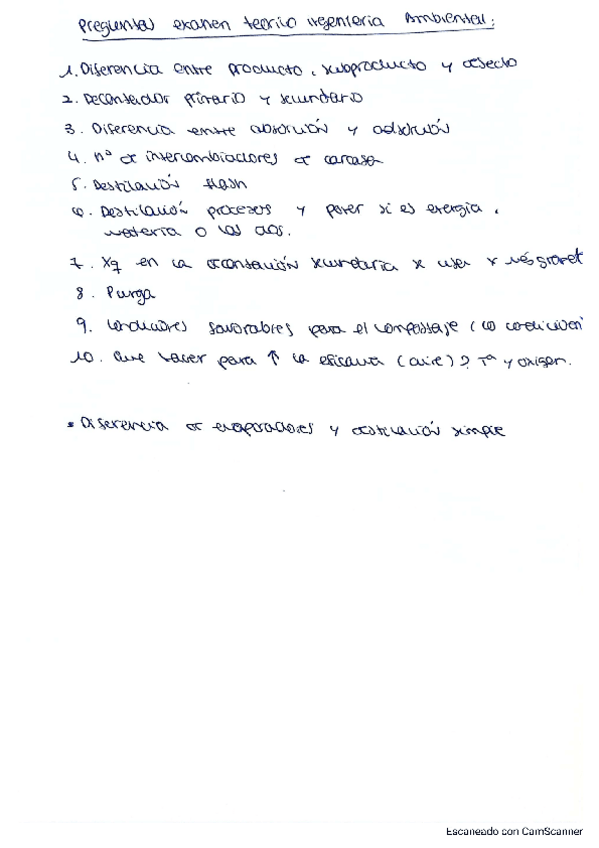 Preguntas examen teorico ingenieria Ambiental:
1. Diferencia entre producto, subproducto y desecho
2. Decantador primario y secundario
3. Diferencia entre absorción y adsorción
4. nº de intercambiadores de carcasa
5. Destilación flash
6. Destilación procesos y poner si es energia,
materia o las dos.
7. Xq en la decantación secundaria se usan
8. Purga
9. Condiciones favorables para el compostaje (
10. Que hacer para ↑ la eficacia (aire)? Tª y oxigen.
* Diferencia de evaporadores y destilación simple
Escaneado con CamScanner